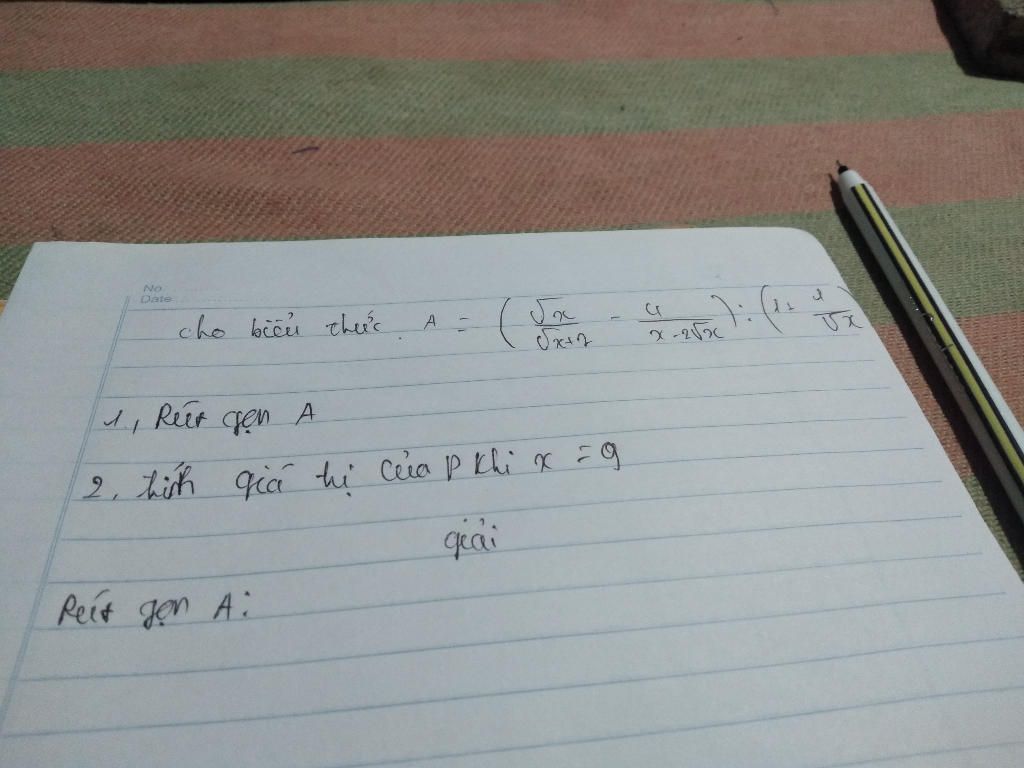 No
Date
cho biểu thức. A = (√x/√x+2 - 4/x-2√x) : (1+ 1/√x)
1, Rút gọn A
2. tính giá trị của P khi x = 9
giải
Rút gọn A: